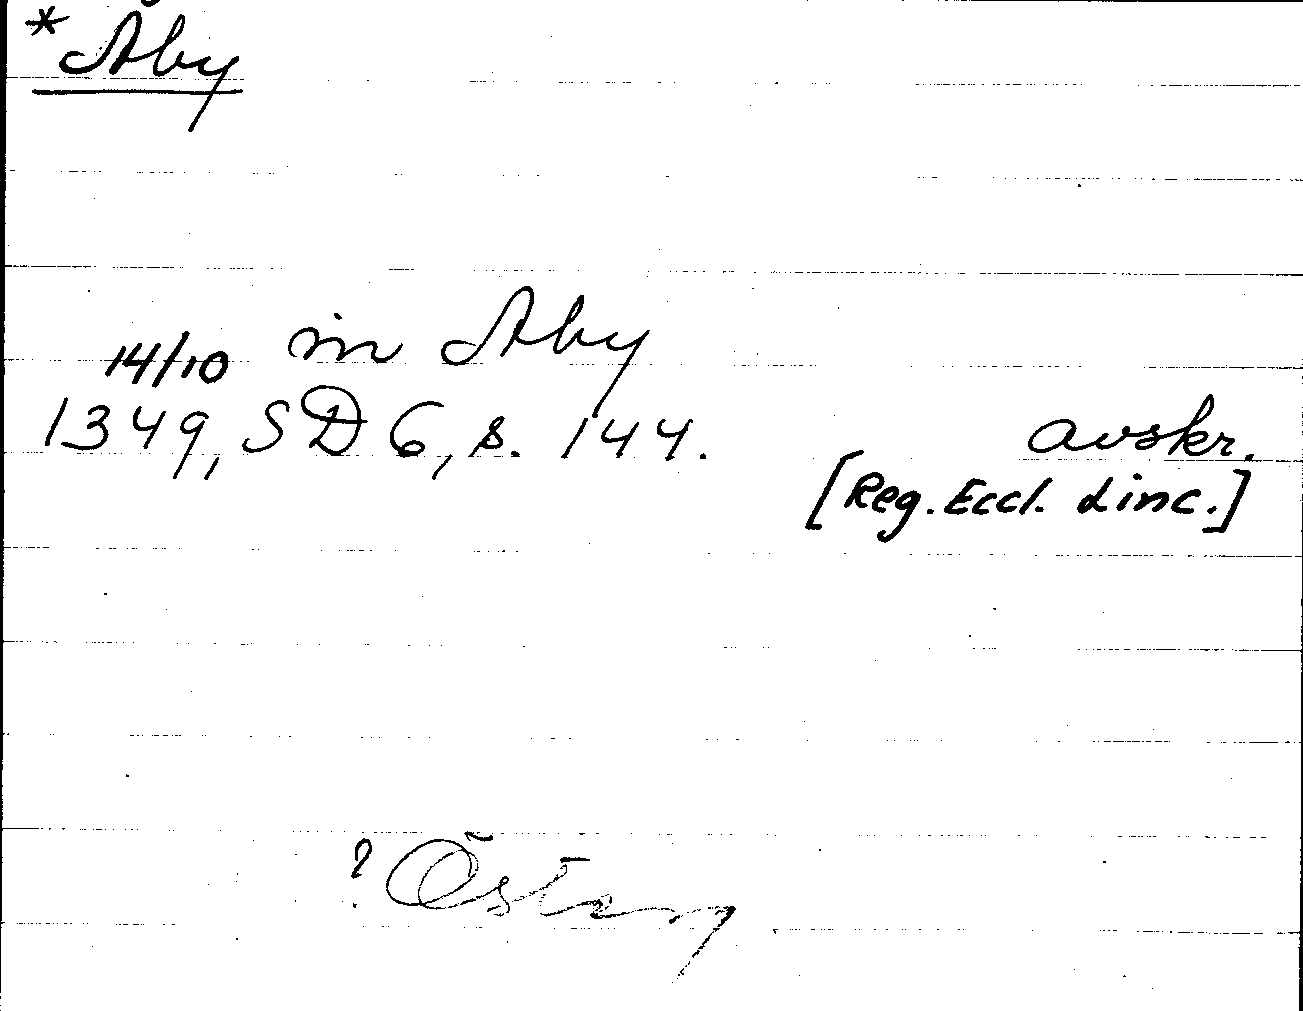 *Åby
in Aby
14/10
1349, SD 6, s. 144. avskr.
[Reg. Eccl. Linc.]
? Österg